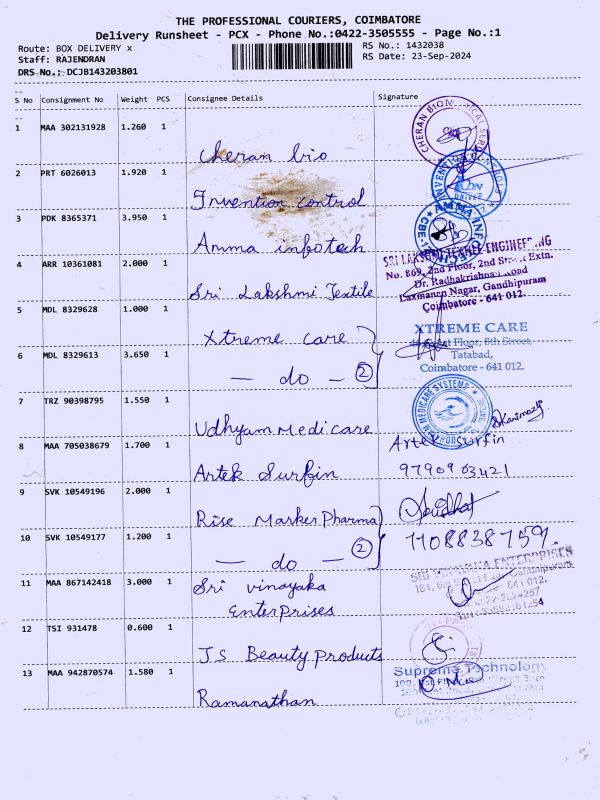 THE PROFESSIONAL COURIERS, COIMBATORE
Delivery Runsheet - PCX - Phone No.:0422-3505555 - Page No.:1
Route: BOX DELIVERY x
RS No.: 1432038
Staff: RAJENDRAN
RS Date: 23-Sep-2024
DRS No.: DCJB143203801
S No Consignment No Weight PCS Consignee Details Signature
1 MAA 302131928 1.260 1
Cheran bio
2 PRT 6026013 1.920 1
Invention control
3 PDK 8365371 3.950 1
Amma infotech
4 ARR 10361081 2.000 1
Sri Lakshmi Textile
SRI LAKSHMI ENGINEERING
No. 869, 2nd Floor, 2nd Street Extn.
Dr. Radhakrishnan Road
Laxmanan Nagar, Gandhipuram
Coimbatore - 641 012.
5 MDL 8329628 1.000 1
Xtreme care
XTREME CARE
Floor, 8th Street,
Tatabad,
Coimbatore - 641 012.
6 MDL 8329613 3.650 1
— do — 2
7 TRZ 90398795 1.550 1
Udhyam Medicare
8 MAA 705038679 1.700 1
Artek Surfin
Artek Surfin
9790963421
9 SVK 10549196 2.000 1
Rise Marker Pharma
10 SVK 10549177 1.200 1
— do — 2
1108838759.
11 MAA 867142418 3.000 1
Sri vinayaka
Enterprises
SRI VINAYAKA ENTERPRISES
12 TSI 931478 0.600 1
J.S Beauty Products
13 MAA 942870574 1.580 1
Ramanathan
Supreme Technology